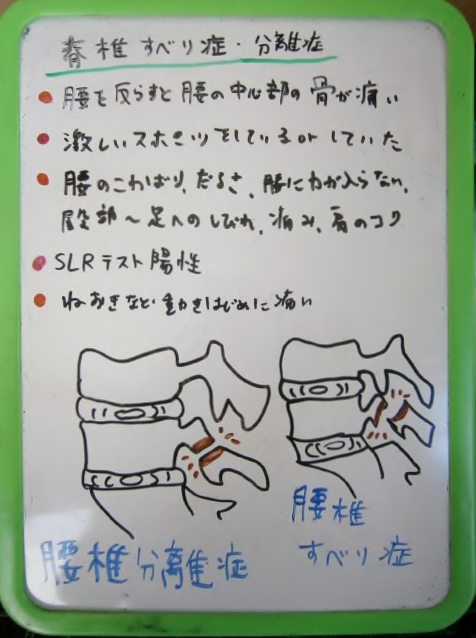 脊椎すべり症・分離症
腰を反らすと腰の中心部の骨が痛い
激しいスポーツをしているorしていた
腰のこわばり、だるさ、腰に力が入らない、
臀部〜足へのしびれ、痛み、肩のコリ
SLRテスト陽性
ねおきなど動きはじめに痛い
腰椎
すべり症
腰椎分離症